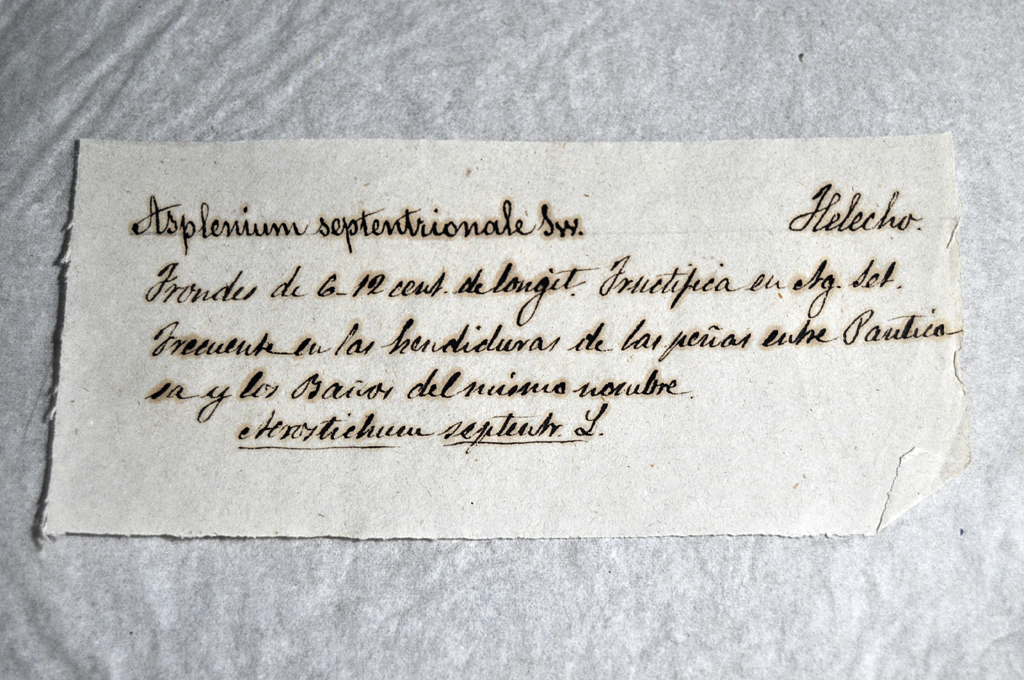 Asplenium septentrionale Sw. Helecho.
Frondes de 6-12 cent. de longit. Fructifica en Ag. Set.
Frecuente en las hendiduras de las peñas entre Pantico-
sa y los Baños del mismo nombre.
Acrostichum septentr. L.